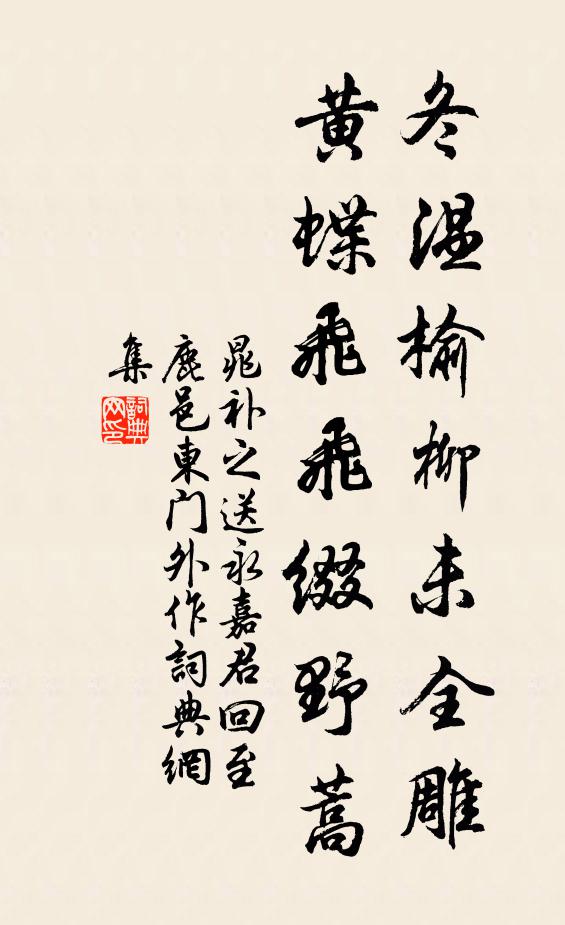 冬温榆柳未全雕
黄蝶飛飛綴野蒿
晁补之送永嘉君回至
鹿邑東门外作詞典網
集
詞典
网印